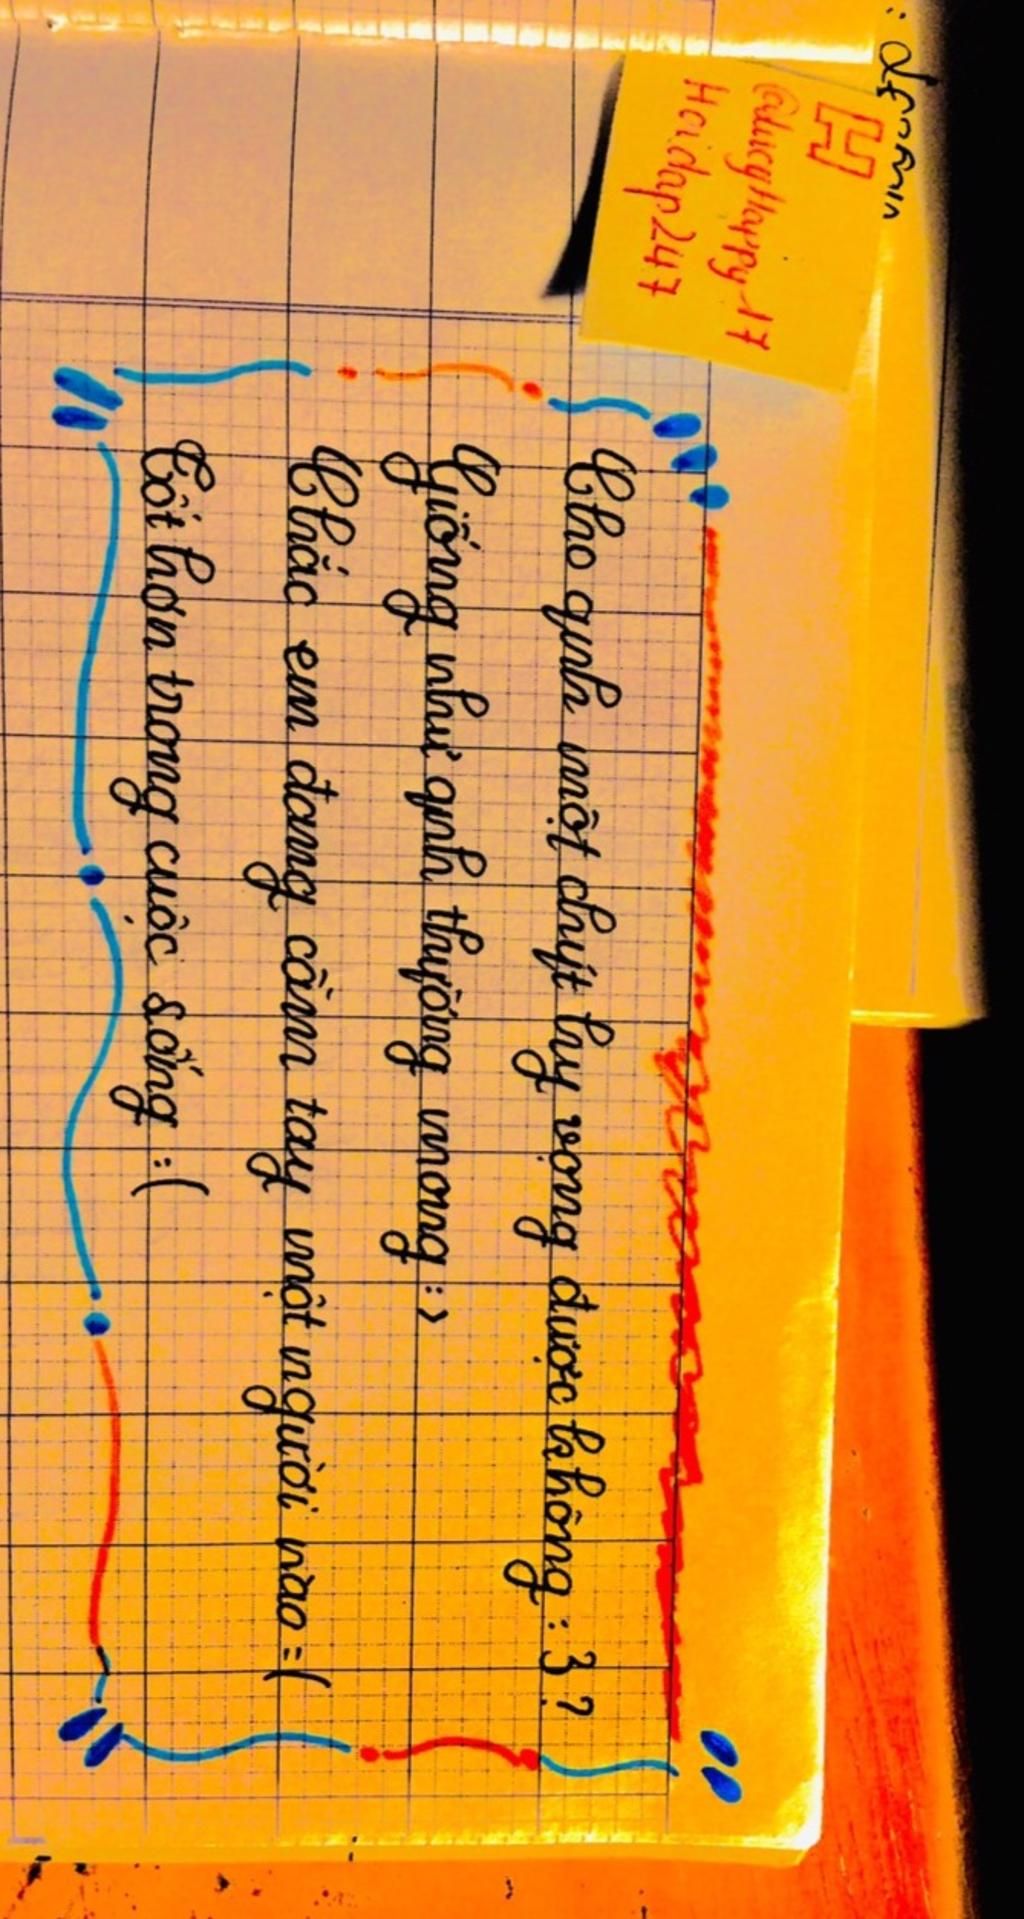 H
@lucyHappy_17
Hoidap247
Cho anh một chút hy vọng được không : 3 ?
Giống như anh thường mong : >
Chắc em đang cầm tay một người nào =(
Tốt hơn trong cuộc sống :(